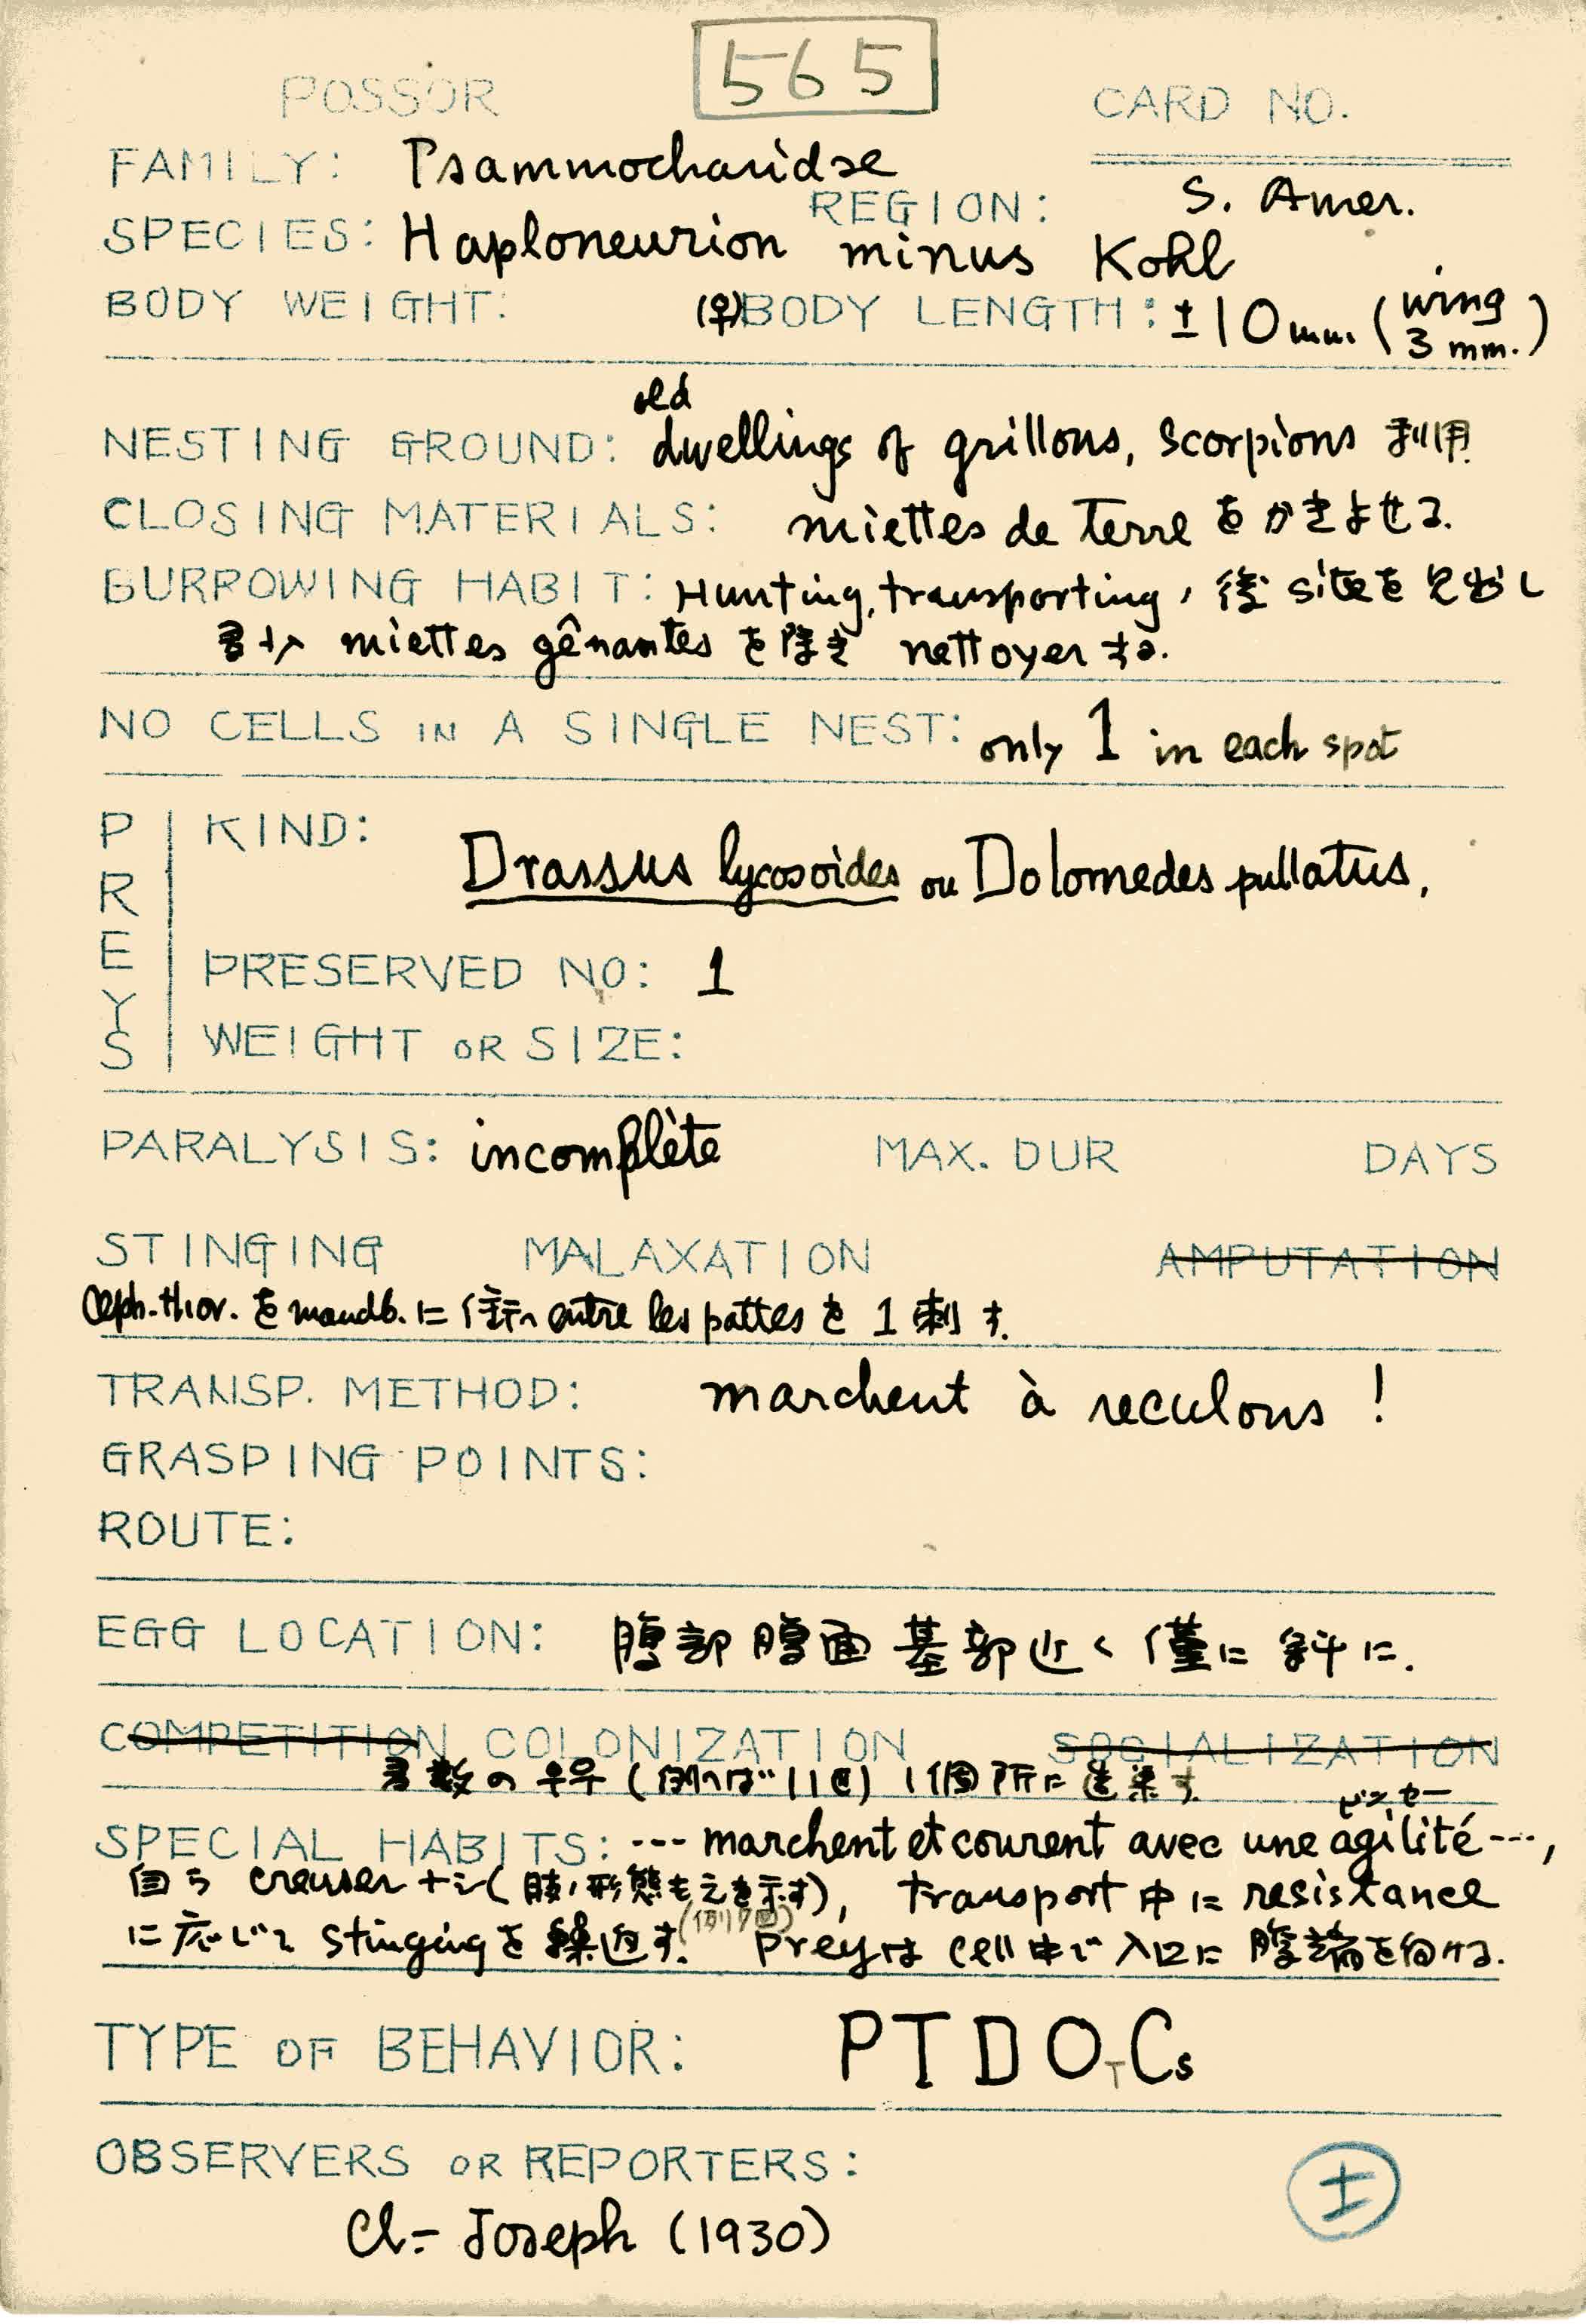 565
POSSOR CARD NO.
FAMILY: Psammocharidae
REGION: S. Amer.
SPECIES: Haploneurion minus Kohl
BODY WEIGHT: (♀)BODY LENGTH: ±10mm. (wing 3 mm.)
old
NESTING GROUND: dwellings of grillons, Scorpions 利用.
CLOSING MATERIALS: miettes de Terre をかきよせる.
BURROWING HABIT: Hunting, transporting, 後 siteを見出し
miettes gênantes を除き nettoyer する.
NO CELLS IN A SINGLE NEST: only 1 in each spot
PREYS
KIND: Drassus lycosoides ou Dolomedes pullatus,
PRESERVED NO: 1
WEIGHT OR SIZE:
PARALYSIS: incomplète MAX. DUR DAYS
STINGING MALAXATION AMPUTATION
Ceph-thor. を mandb. に entre les pattes を 1 刺す.
TRANSP. METHOD: marchent à reculons !
GRASPING POINTS:
ROUTE:
EGG LOCATION: 腹部腹面基部近く僅に斜に.
COMPETITION COLONIZATION SOCIALIZATION
多数の (例へば 11コ) 1個所に造巣す.
SPECIAL HABITS: --- marchent et courent avec une agilité ---,
自ら creuser せず (肢ノ形態も之を示す), transport 中に resistance
に応じて stinging を繰返す. (例17回) Preyは cell 中で入口に腹端を向ける.
TYPE OF BEHAVIOR: PTDOTCs
OBSERVERS OR REPORTERS:
Cl- Joseph (1930)
±